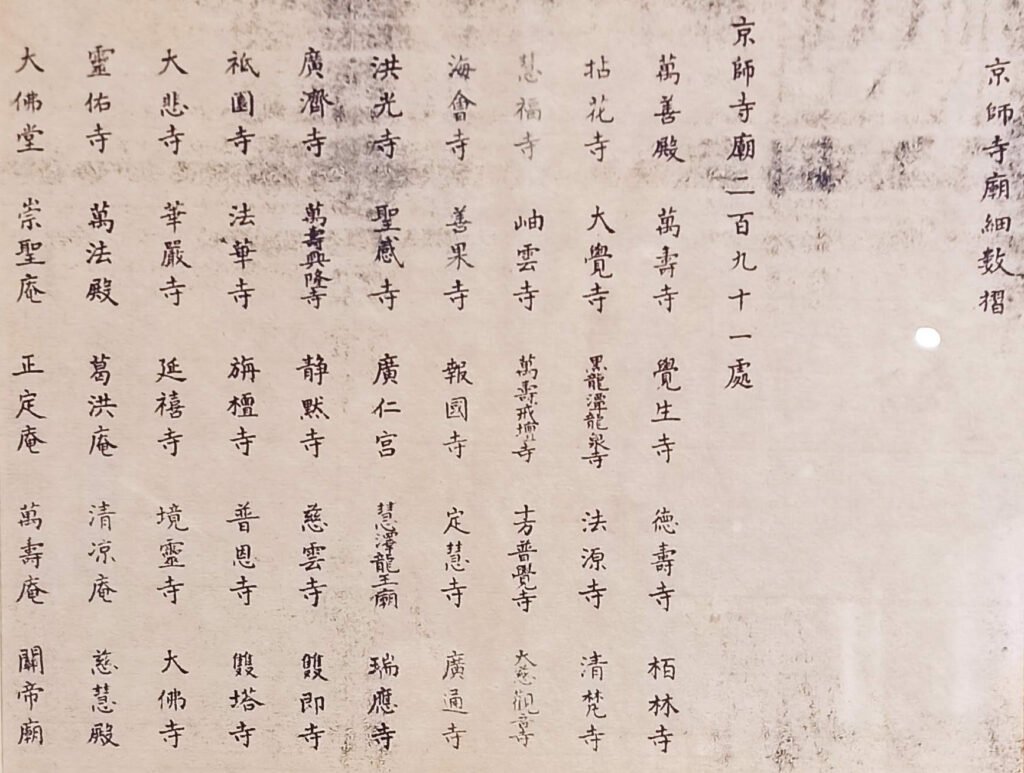 京師寺廟細數摺
京師寺廟二百九十一處
萬善殿 萬壽寺 覺生寺 德壽寺 栢林寺
拈花寺 大覺寺 黑龍潭龍泉寺 法源寺 清梵寺
慧福寺 岫雲寺 萬壽戒壇寺 十方普覺寺 大慈觀音寺
海會寺 善果寺 報國寺 定慧寺 廣通寺
洪光寺 聖感寺 廣仁宮 慧澤龍王廟 瑞應寺
廣濟寺 萬壽興隆寺 静默寺 慈雲寺 雙即寺
祗園寺 法華寺 旃檀寺 普恩寺 雙塔寺
大悲寺 華嚴寺 延禧寺 境靈寺 大佛寺
靈佑寺 萬法殿 葛洪庵 清凉庵 慈慧殿
大佛堂 崇聖庵 正定庵 萬壽庵 關帝廟